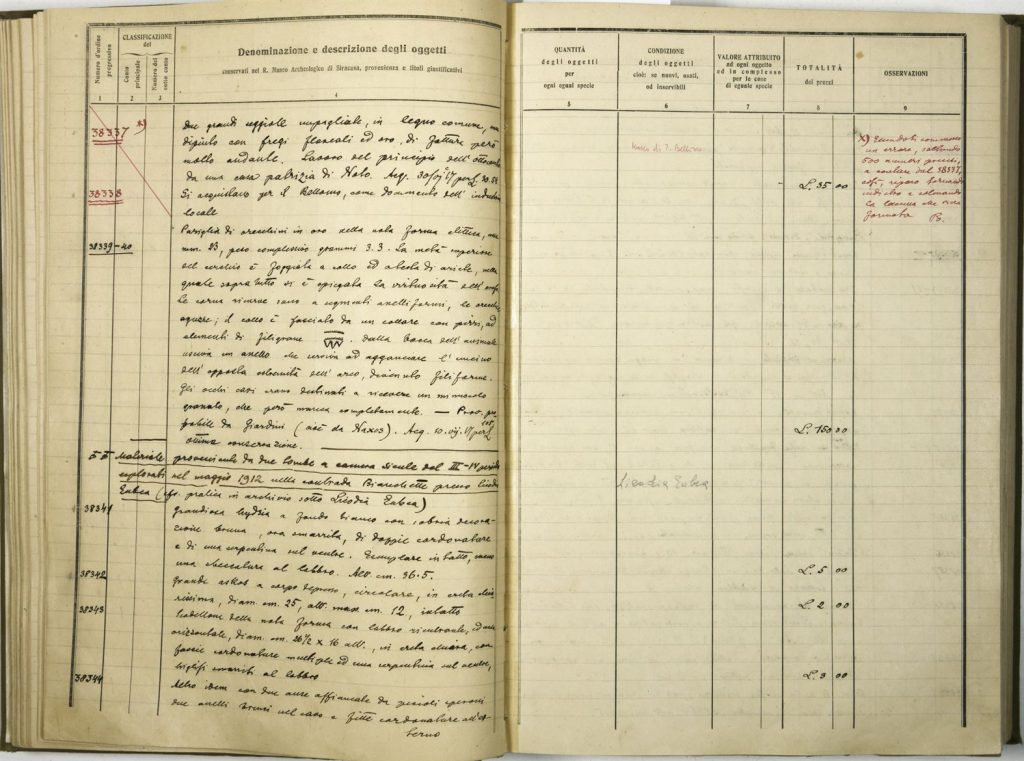 Numero d'ordine progressivo
CLASSIFICAZIONE
del
Conto principale
Numero del sotto conto
Denominazione e descrizione degli oggetti
conservati nel R. Museo Archeologico di Siracusa, provenienza e titoli giustificativi
1 2 3 4
38337 x)
Due grandi seggiole impagliate, in legno comune,
dipinto con fregi floreali ed oro, di fattura però
molto andante. Lavoro del principio dell'ottocento
da una casa patrizia di Noto. Acq.
38338
Si acquistano per il Bellomo, come documento dell'industria
locale
Pariglia di orecchini in oro della nota forma elittica,
38339-40
mm. 23, peso complessivo grammi 3.3. La metà superiore
del cerchio è foggiata a collo ed a testa di ariete, nella
quale sopratutto si è spiegata la virtuosità dell'
le corna ricurve sono a segmenti anelliformi, le orecchie
aguzze; il collo è fasciato da un collare con
elementi di filigrana . Dalla bocca dell'animale
usciva un anello che serviva ad agganciare l'uncino
dell'opposta estremità dell'arco, divenuto filiforme.
Gli occhi cavi erano destinati a ricevere un minuscolo
granato, che però manca completamente. — Prov.
da Giardini (cioè da Naxos). Acq. 10. vij. 17 per L.
ottima conservazione.
Materiale proveniente da due tombe a camera sicule del III-IV periodo
esplorate nel maggio 1912 nella contrada presso Licodia
Eubea (cfr. pratica in archivio sotto Licodia Eubea)
38341
Grandiosa hydria a fondo bianco con sobria decora-
zione bruna, ora smarrita, di doppie cordonature
e di una serpentina sul ventre. Esemplare intatto, meno
una sbeccatura al labbro. Alt. cm. 36.5.
38342
Grande askos a corpo tensono, circolare, in creta
diam. cm. 25, alt. mass. cm. 12, intatto
38343
Scodellone della nota forma con labbro rientrante, ed
orizzontale, diam. cm. 26½ x 16 alt., in creta chiara, con
fascie cordonature multiple ed una serpentina sul ventre,
triglifi smarriti al labbro
38344
Altro idem con due anse affiancate da piccoli speroni
due anelli bruni nel cavo e fitte cordonature all'es-
terno
QUANTITÀ
degli oggetti
per
ogni ugual specie
5
CONDIZIONE
degli oggetti
cioè: se nuovi, usati,
od inservibili
6
VALORE ATTRIBUITO
ad ogni oggetto
od in complesso
per le cose
di eguale specie
7
TOTALITÀ
dei prezzi
8
OSSERVAZIONI
9
Museo di P. Bellomo
L. 35 00
x) Essendosi commesso
un errore, saltando
500 numeri
a contare dal 38337,
riparo tornando
indietro e colmando
la lacuna che s'era
formata
L. 150 00
Licodia Eubea
L. 5 00
L. 2 00
L. 3 00